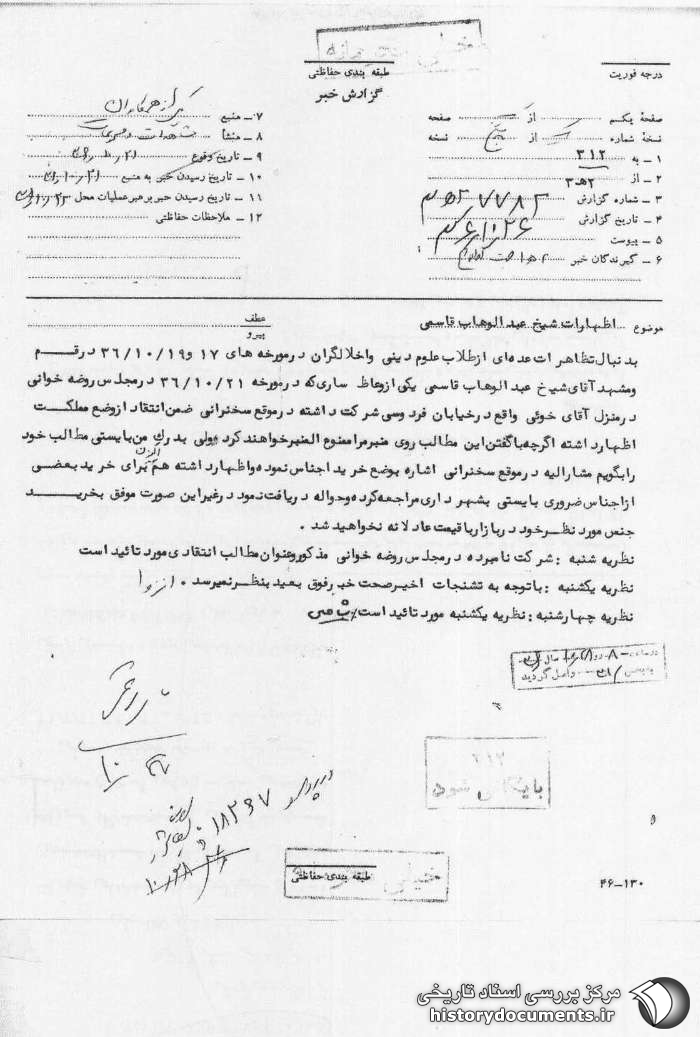 خیلی محرمانه
درجه فوریت
طبقه بندی حفاظتی
گزارش خبر
صفحه یکم از صفحه
نسخه شماره از نسخه
۱ ـ به ۳۱۲
۲ ـ از ۲هـ۳
۳ ـ شماره گزارش
۴ ـ تاریخ گزارش
۵ ـ پیوست
۶ ـ گیرندگان خبر
۷ ـ منبع یکی از همکاران
۸ ـ منشأ
۹ ـ تاریخ وقوع
۱۰ ـ تاریخ رسیدن خبر به منبع
۱۱ ـ تاریخ رسیدن خبر برهبر عملیات محل
۱۲ ـ ملاحظات حفاظتی
موضوع اظهارات شیخ عبدالوهاب قاسمی
عطف
پیرو
بدنبال تظاهرات عده‌ای از طلاب علوم دینی واخلالگران درمورخه های ۱۷ و۳۶/۱۰/۱۹ درقم
ومشهد آقای شیخ عبدالوهاب قاسمی یکی ازوعاظ ساری که درمورخه ۳۶/۱۰/۲۱ درمجلس روضه خوانی
درمنزل آقای خوئی واقع درخیابان فردوسی شرکت داشته درموقع سخنرانی ضمن انتقاد ازوضع مملکت
اظهارداشته اگرچه باگفتن این مطالب روی منبر مراممنوع المنبرخواهند کرد ولی بدرك من بایستی مطالب خود
رابگویم مشارالیه درموقع سخنرانی اشاره بوضع خرید اجناس نموده واظهارداشته هم الان برای خرید بعضی
ازاجناس ضروری بایستی بشهرداری مراجعه کرده وحواله دریافت نمود درغیراین صورت موفق بخرید
جنس مورد نظرخود دربازار باقیمت عادلانه نخواهید شد .
نظریه شنبه : شرکت نامبرده درمجلس روضه خوانی مذکوروعنوان مطالب انتقادی مورد تائید است
نظریه یکشنبه : باتوجه به تشنجات اخیرصحت خبرفوق بعید بنظرنمیرسد .
نظریه چهارشنبه : نظریه یکشنبه مورد تائید است
واصل گردید
۳۱۲
بایگانی شود
۱۸۳۶۷
خیلی
طبقه بندی حفاظتی
۴۶-۱۳۰
مرکز بررسی اسناد تاریخی
historydocuments.ir